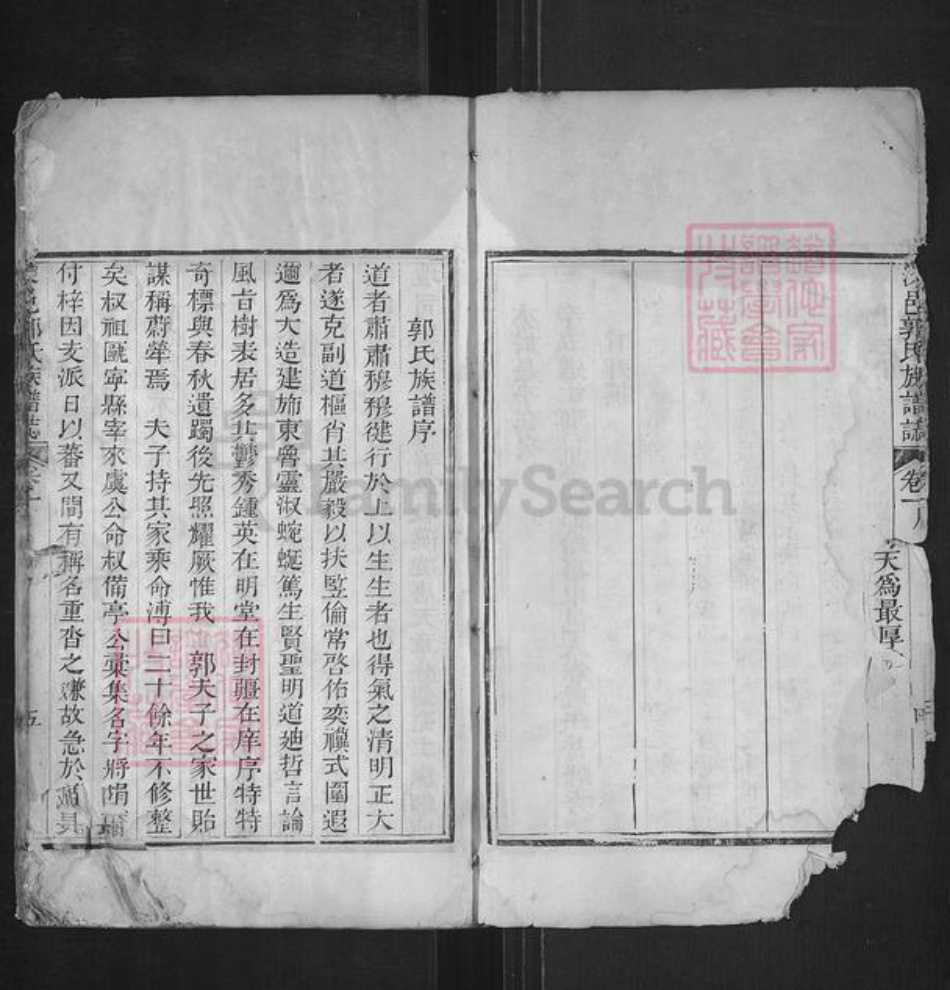 天為最厚
邑郭氏族譜誌 卷一
郭氏族譜序
道者肅肅穆穆健行於上以生生者也得氣之清明正大
者遂克副道樞肖其嚴毅以扶監倫常啓佑奕禩式圍遐
邇為大造建斾東魯靈淑蜿蜒篤生賢聖明道廸哲言論
風旨樹表居多其鬱秀鍾英在明堂在封疆在庠序特特
奇標與春秋遺躅後先照耀厥惟我 郭夫子之家世貽
謀稱蔚犖焉 夫子持其家乘命溥曰三十餘年不修整
矣叔祖甌寧縣宰來虞公命叔備亭公彙集名字將
付梓因支派日以蕃又間有稱名重沓之嫌故急於
邑郭氏族譜誌
五
FamilySearch